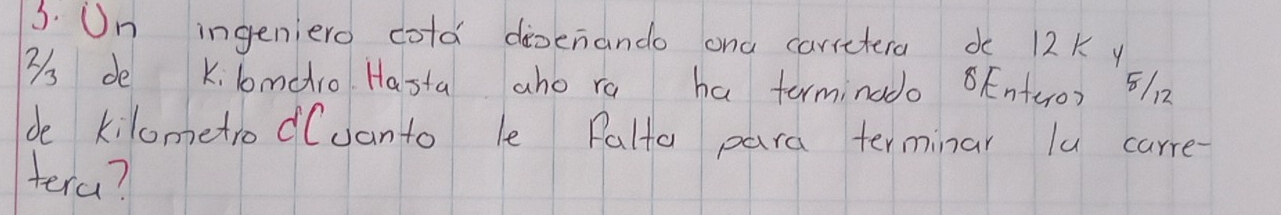 3. Un ingeniero está diseñando una carretera de 12 K y
2/3 de Kilometro. Hasta aho ra ha terminado 8 Enteros 5/12
de Kilometro ¿Cuanto le falta para terminar la carre-
tera?